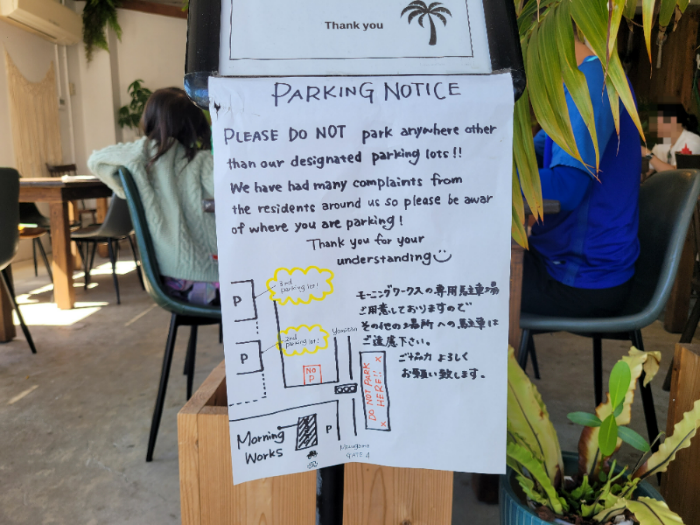 Thank you
PARKING NOTICE
PLEASE DO NOT park anywhere other
than our designated parking lots!!
We have had many complaints from
the residents around us so please be awar
of where you are parking!
Thank you for your
understanding
モーニングワークスの専用駐車場
ご用意しておりますので
その他の場所への駐車は
ご遠慮下さい。
ご協力 よろしく
お願い致します。
P
parking lot!
2nd
parking lot!
P
NO
P
DO NOT PARK
HERE!!
P
Morning
Works